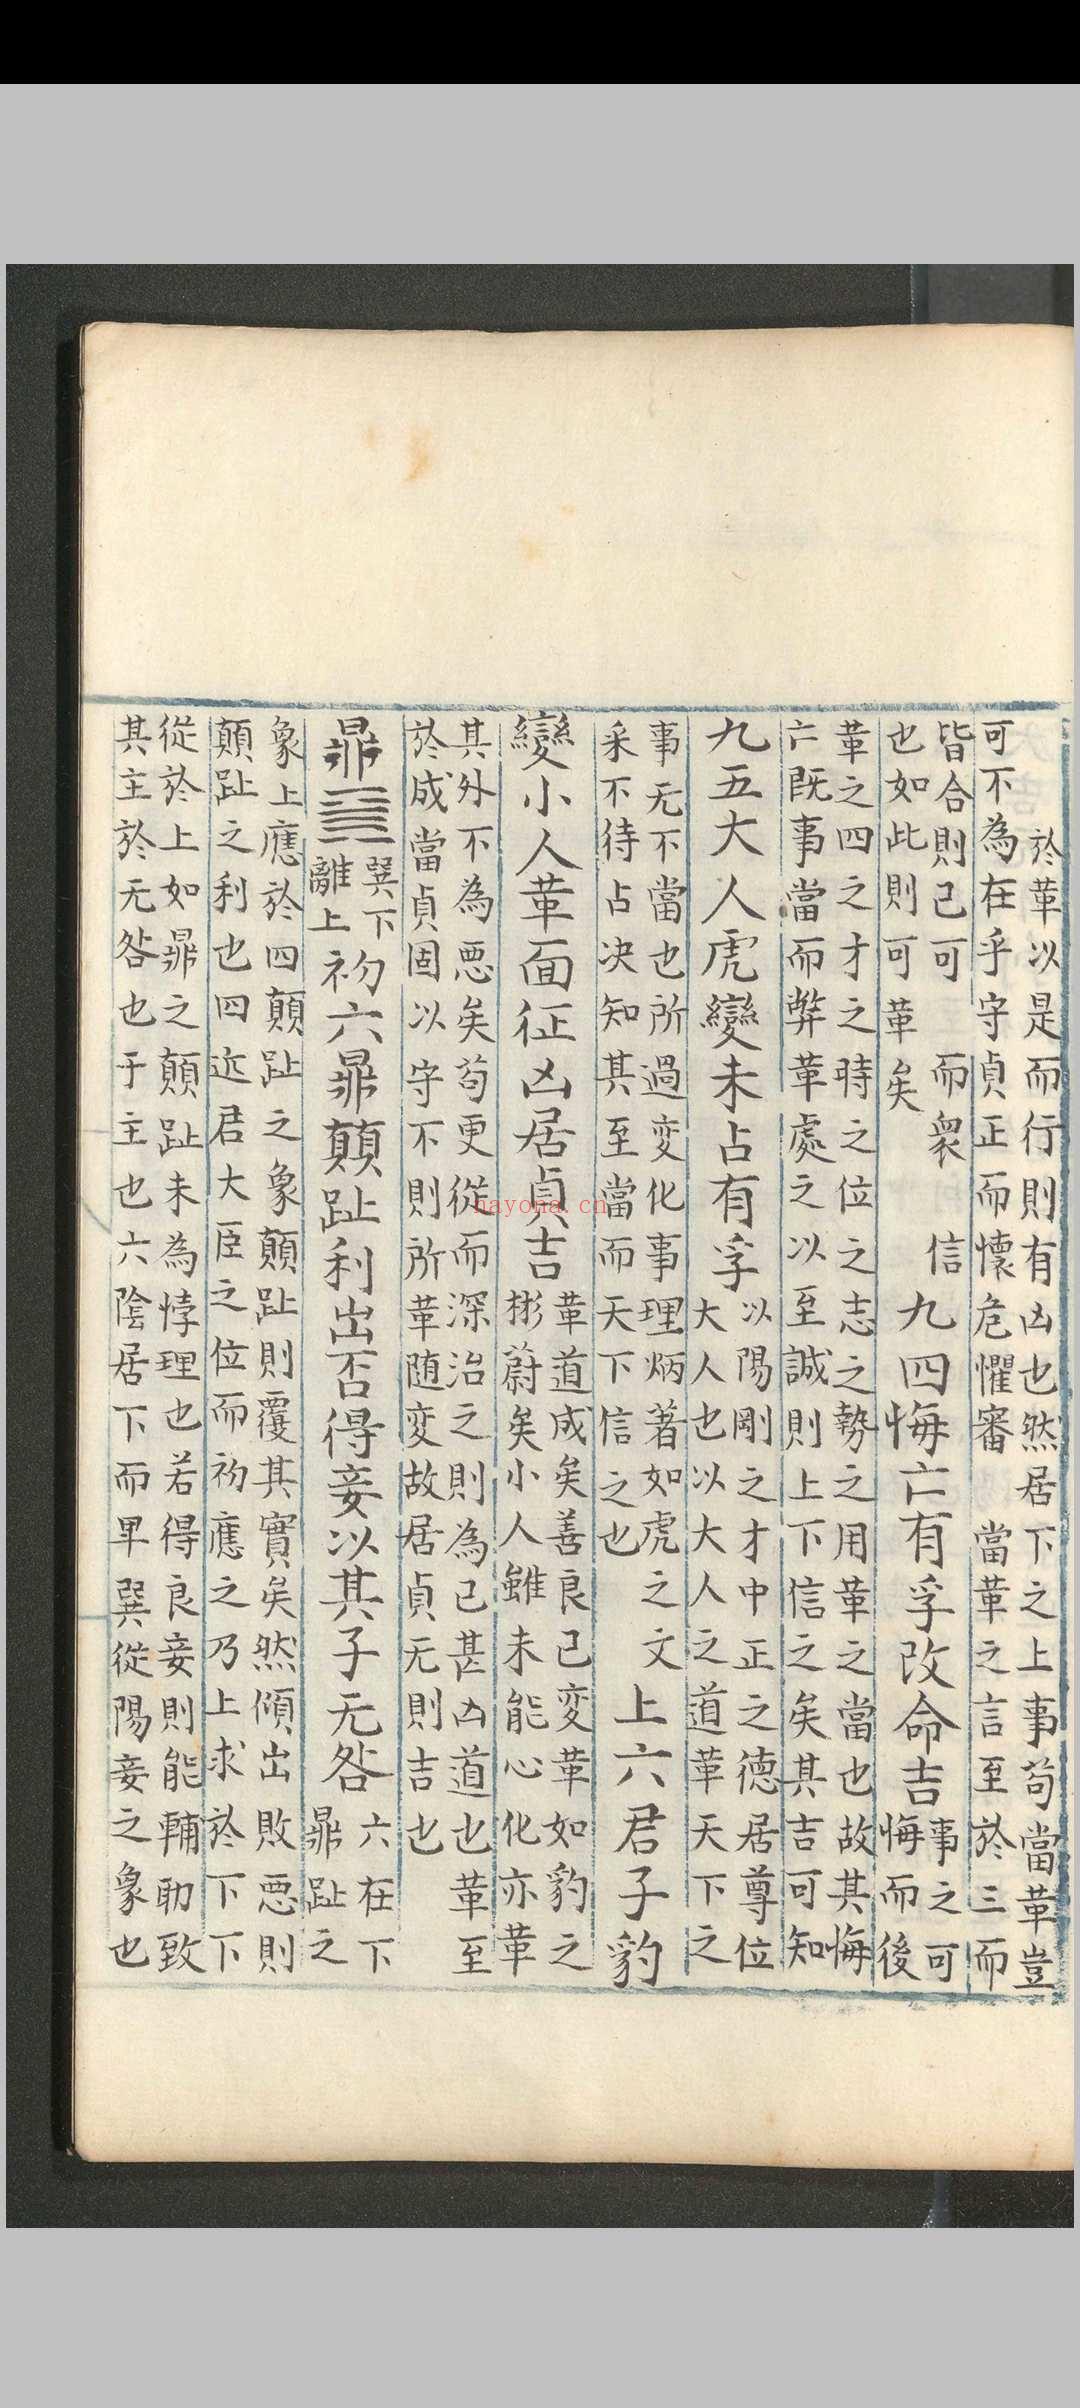 於革以是而行則有凶也然居下之上事苟當革豈
可不為在乎守貞正而懷危懼審當革之言至於三而
皆合則已可而衆信
也如此則可革矣
九四悔亡有孚改命吉
事之可
悔而後
革之四之才之時之位之志之勢之用革之當也故其悔
亡既事當而弊革處之以至誠則上下信之矣其吉可知
九五大人虎變未占有孚
以陽剛之才中正之德居尊位
大人也以大人之道革天下之
事无不當也所過变化事理炳著如虎之文
采不待占决知其至當而天下信之也
上六君子豹
變小人革面征凶居貞吉
革道成矣善良已变革如豹之
彬蔚矣小人雖未能心化亦革
其外不為悪矣苟更從而深治之則為已甚凶道也革至
於成當貞固以守不則所革随变故居貞无則吉也
鼎䷱
巽下
離上
初六鼎顛趾利出否得妾以其子无咎
六在下
鼎趾之
象上應於四顛趾之象顛趾則覆其實矣然傾出敗悪則
顛趾之利也四近君大臣之位而初應之乃上求於下下
從於上如鼎之顛趾未為悖理也若得良妾則能輔助致
其主於无咎也于主也六陰居下而卑巽從陽妾之象也
nayona.cn